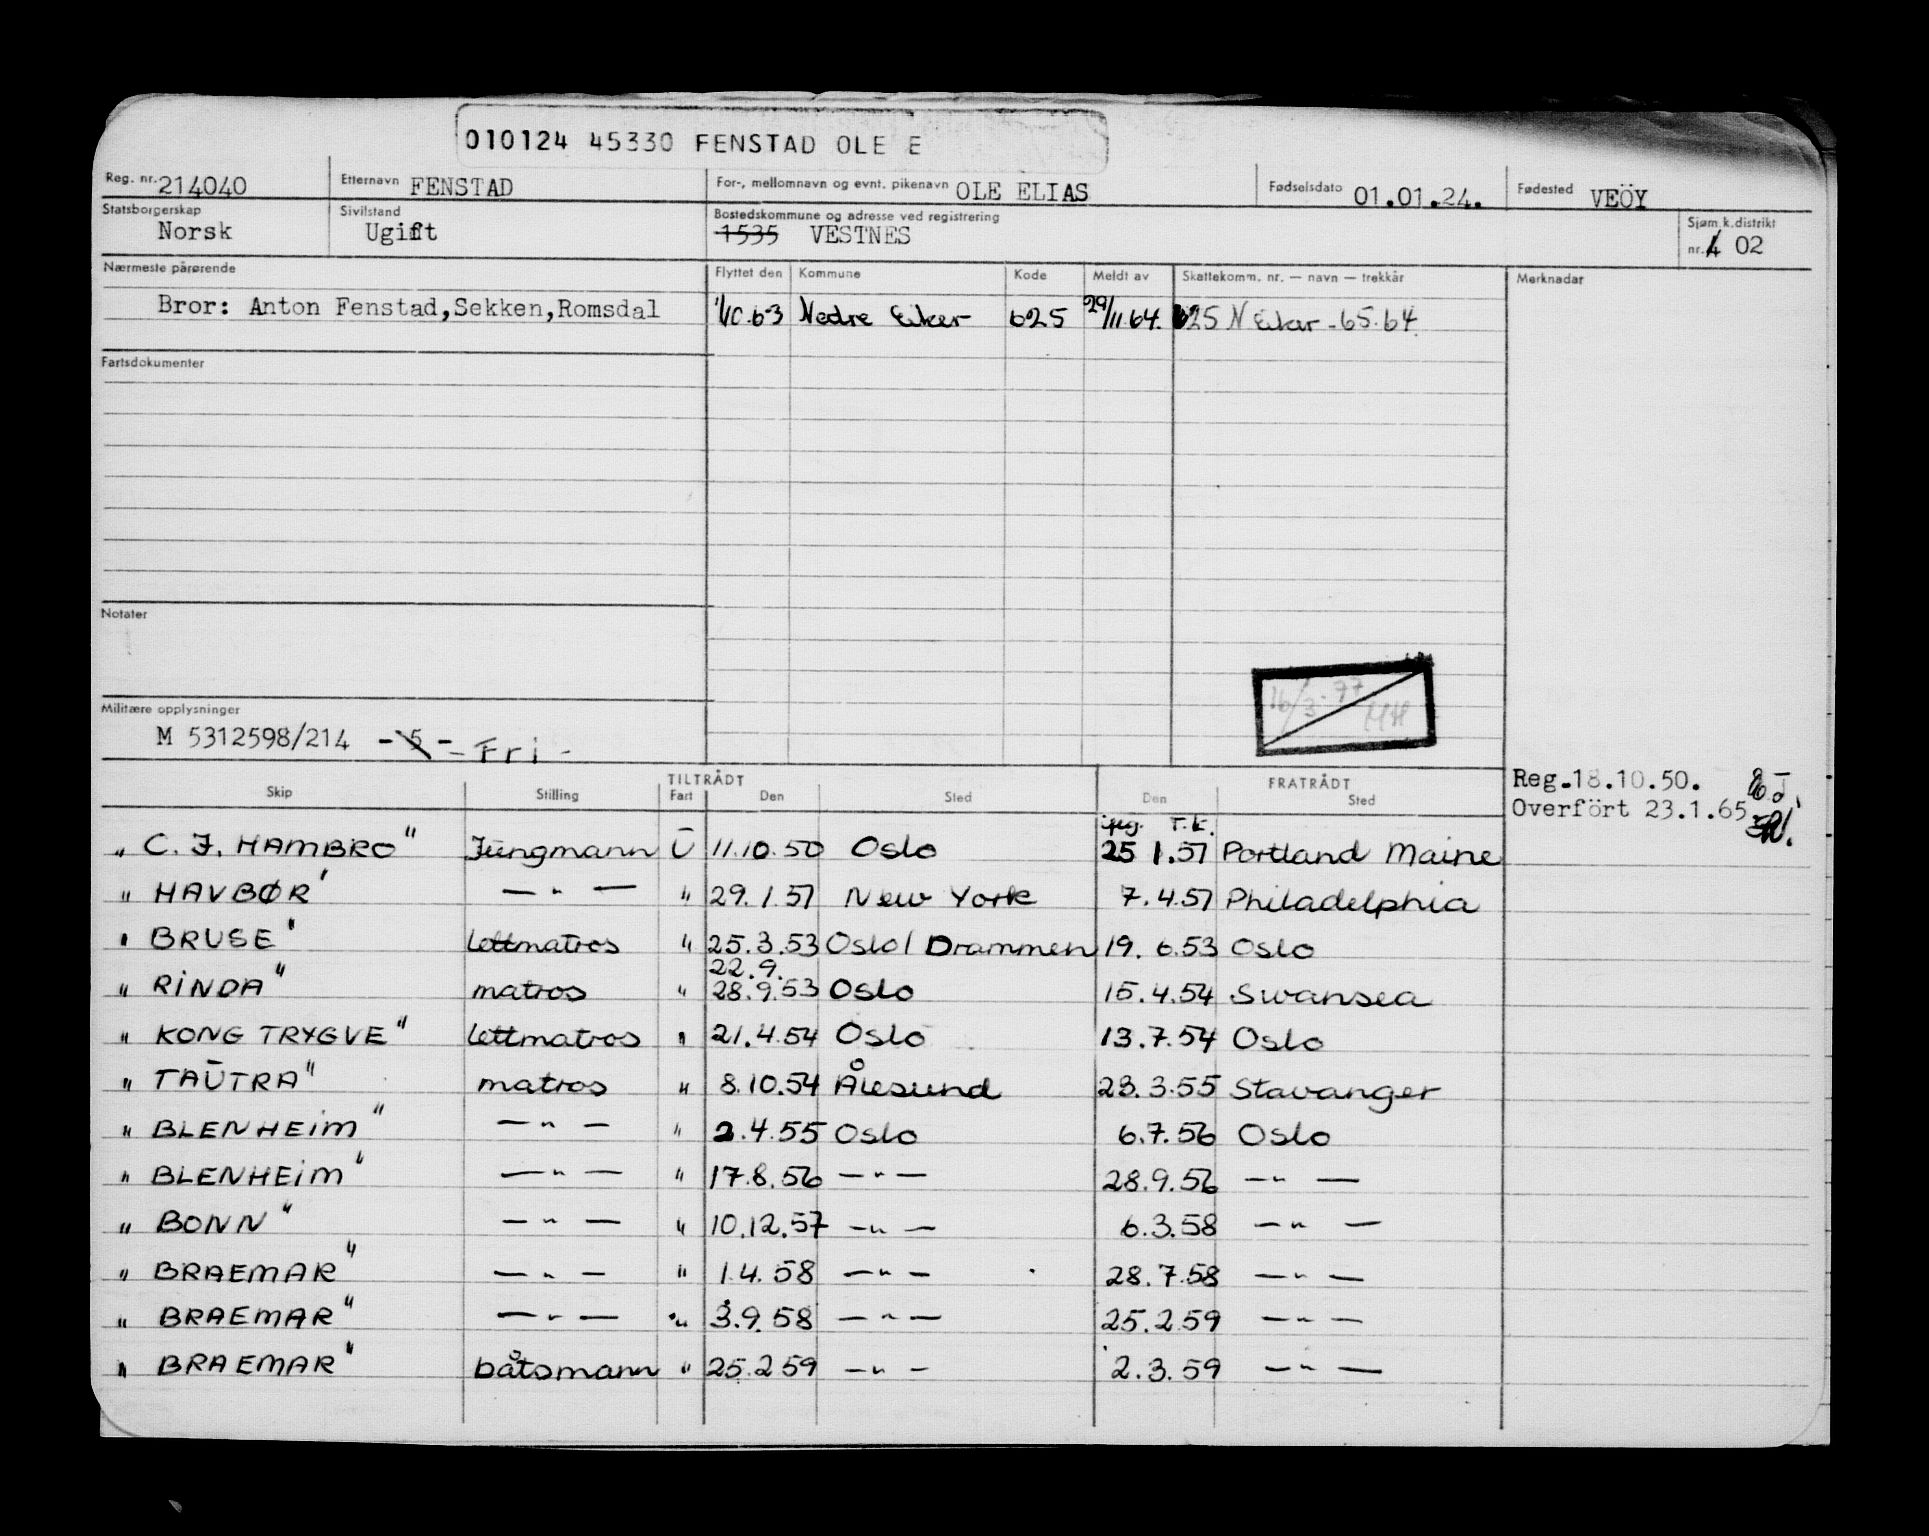 010124 45330 FENSTAD OLE E
Reg. nr. 214040 Etternavn FENSTAD For-, mellomnavn og evnt. pikenavn OLE ELIAS Fødselsdato 01.01.24. Fødested VEÖY
Statsborgerskap Sivilstand Bostedskommune og adresse ved registrering Sjøm.k.distrikt
Norsk Ugift 1535 VESTNES nr. 4 02
Nærmeste pårørende Flyttet den Kommune Kode Meldt av Skattekomm. nr. — navn — trekkår Merknadar
Bror: Anton Fenstad,Sekken,Romsdal 1/10.63 Nedre Eiker 625 29/11.64. 625 N Eiker - 65.64
Fartsdokumenter
Notater
16/3-77 HH
Militære opplysninger
M 5312598/214 - 5 - - Fri -
TILTRÅDT FRATRÅDT Reg.18.10.50.
Skip Stilling Fart Den Sted Den Sted Overført 23.1.65
T.K.
„ C. J. HAMBRO" Jungmann U 11.10.50 Oslo 25 1.51 Portland Maine
" HAVBØR' — " — " 29.1.51 New York 7.4.51 Philadelphia
" BRUSE" lettmatros " 25.3.53 Oslo / Drammen 19. 6.53 Oslo
22.9.
" RINDA" matros " 28.9.53 Oslo 15.4.54 Swansea
" KONG TRYGVE" lettmatros " 21.4.54 Oslo 13.7.54 Oslo
" TAUTRA" matros " 8.10.54 Ålesund 23.3.55 Stavanger
" BLENHEIM" — " — " 2.4.55 Oslo 6.7.56 Oslo
" BLENHEIM" — " — " 17.8.56 — " — 28.9.56 — " —
" BONN" — " — " 10.12.57 — " — 6.3.58 — " —
" BRAEMAR" — " — " 1.4.58 — " — 28.7.58 — " —
" BRAEMAR" — " — " 3.9.58 — " — 25.2.59 — " —
" BRAEMAR" båtsmann " 25.2.59 — " — 2.3.59 — " —